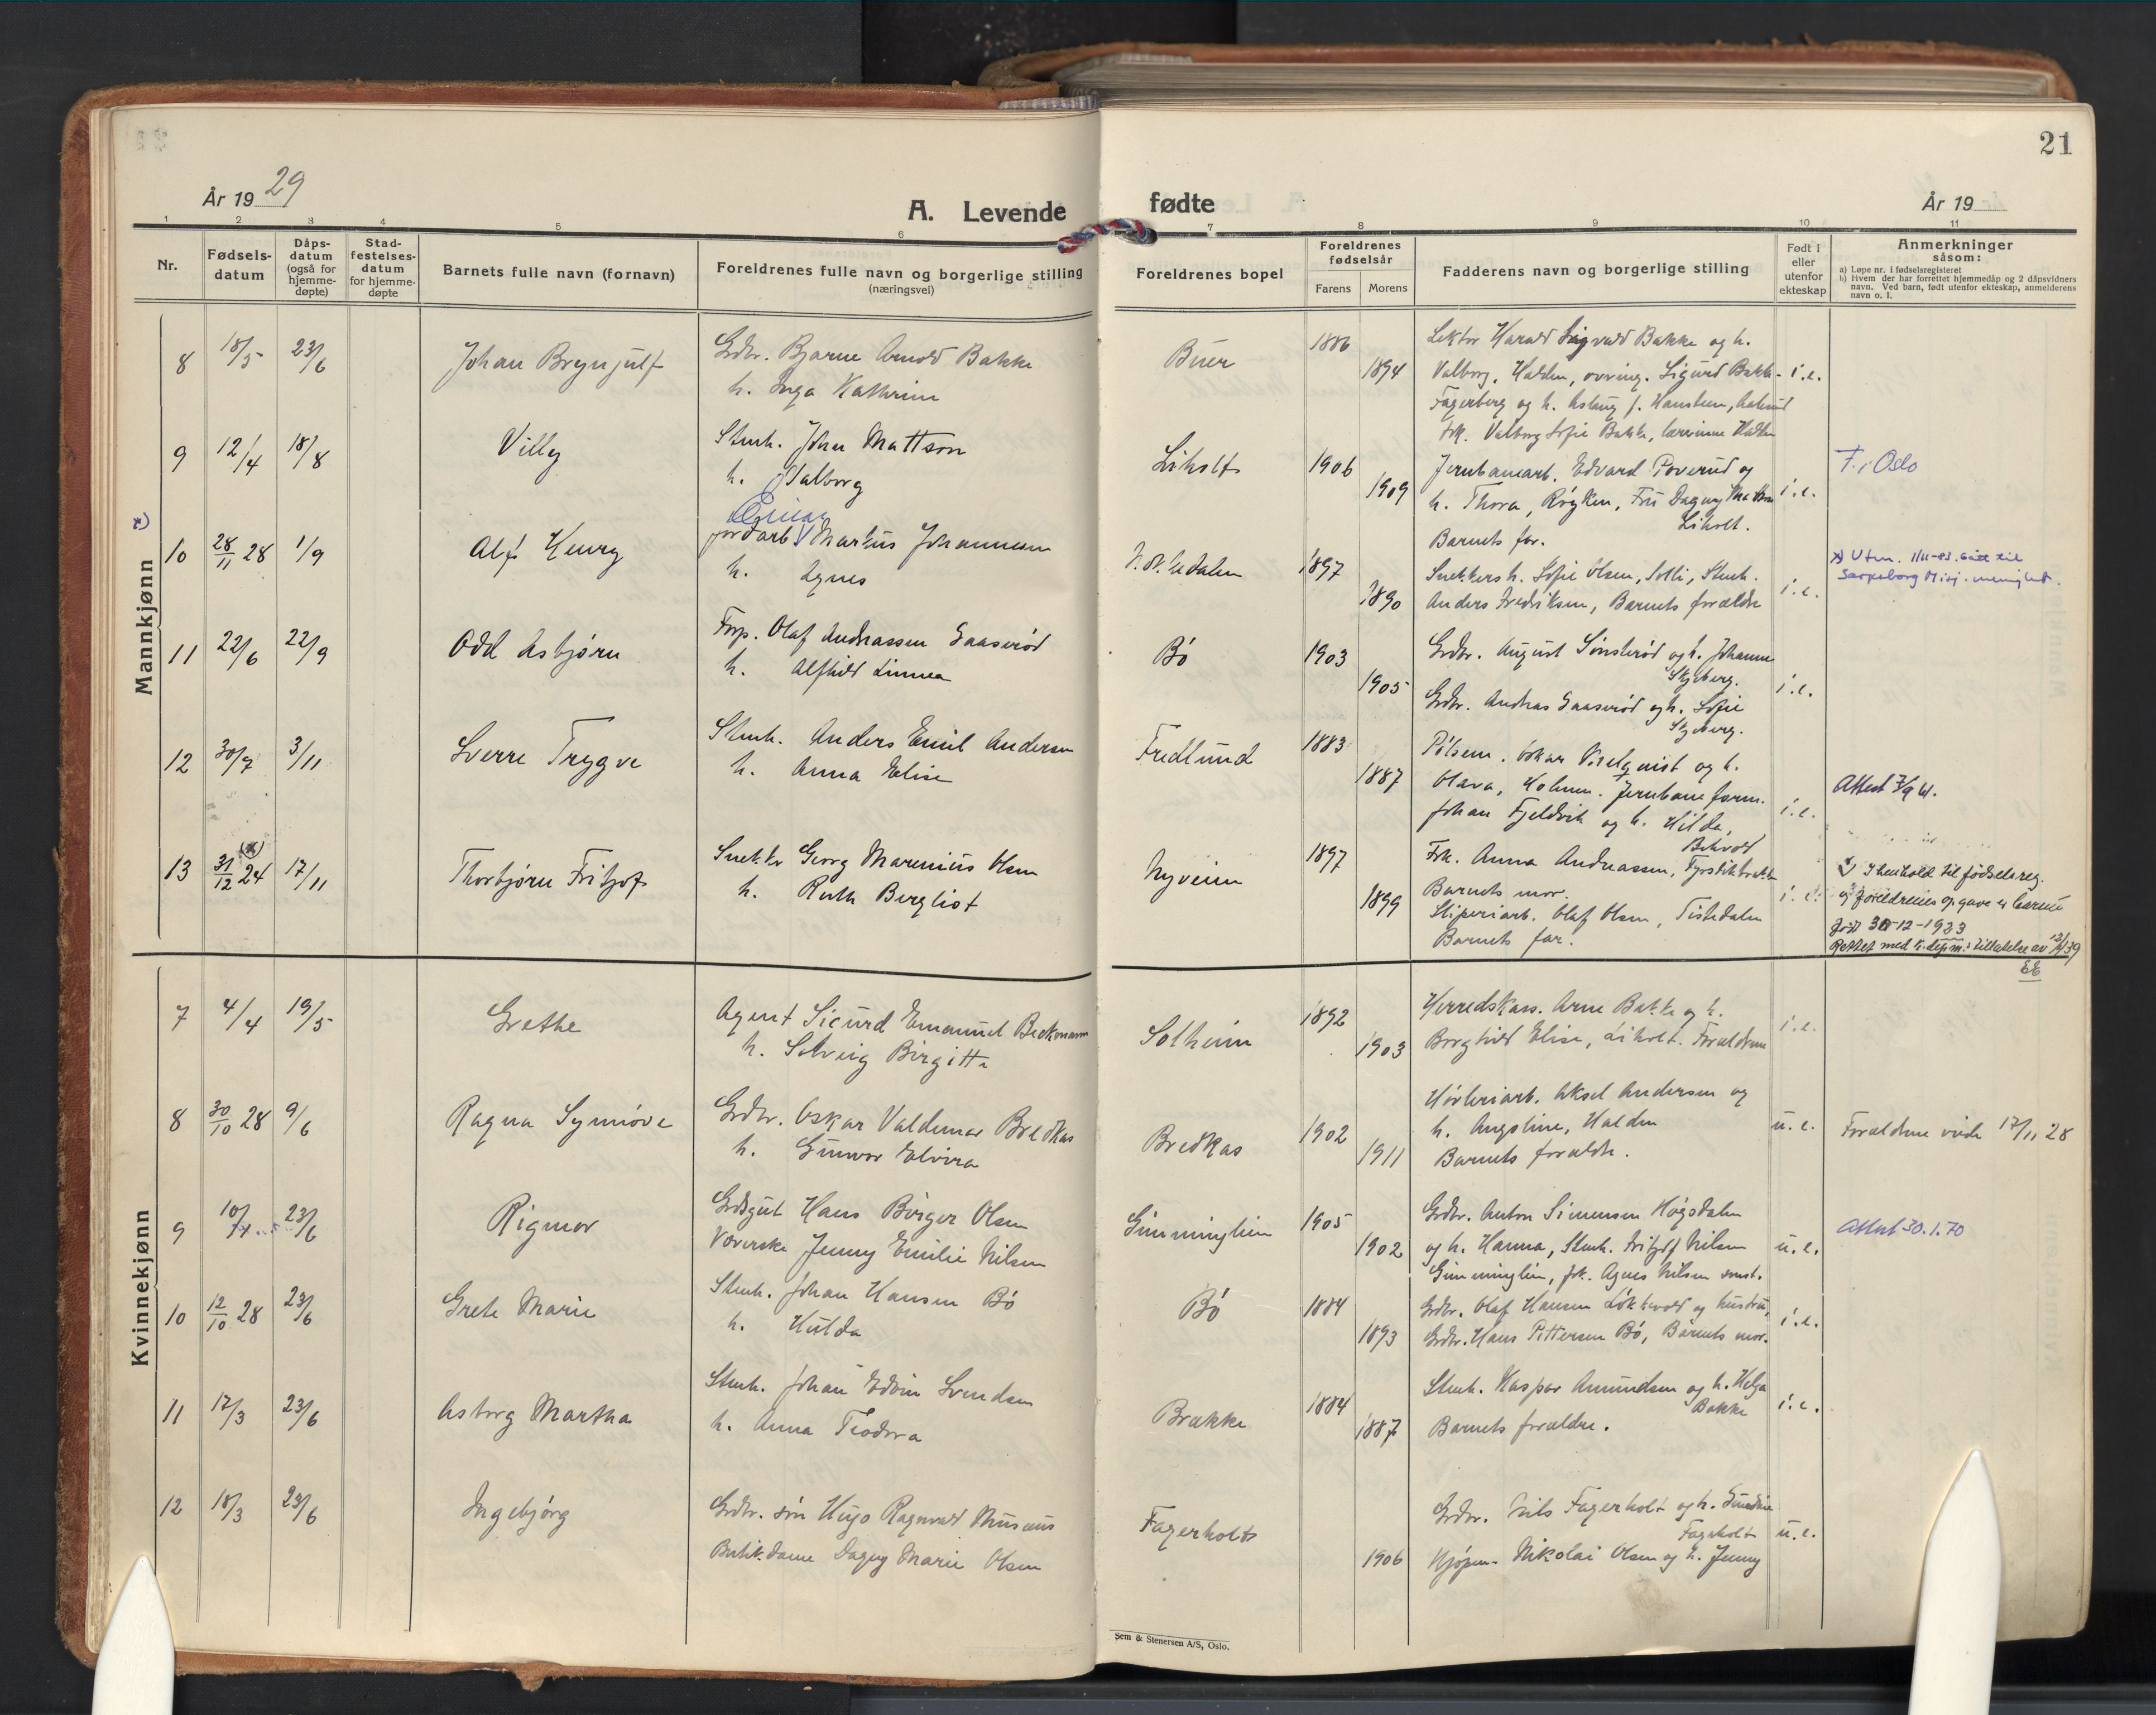 21
År 19 29
A. Levende
fødte
År 19
1 2 3 4 5 6 7 8 9 10 11
Nr.
Fødsels-
datum
Dåps-
datum
(også for
hjemme-
døpte)
Stad-
festelses-
datum
for hjemme-
døpte
Barnets fulle navn (fornavn)
Foreldrenes fulle navn og borgerlige stilling
(næringsvei)
Foreldrenes bopel
Foreldrenes
fødselsår
Farens Morens
Fadderens navn og borgerlige stilling
Født i
eller
utenfor
ekteskap
Anmerkninger
såsom:
a) Løpe nr. i fødselsregisteret
b) Hvem der har forrettet hjemmedåp og 2 dåpsvidners
navn. Ved barn, født utenfor ekteskap, anmelderens
navn o. l.
Mannkjønn
8 18/5 23/6 Johan Brynjulf
Grdbr. Bjarne Arnold Bakke
h. Inga Kathrine
Buer 1886 1894
Lektor Harald Sigvald Bakke og h.
Valborg, Halden, Sigurd Bakke- i.e.
Fagerberg og h. Aslaug f. Hansteen,
Frk. Valborg Sofie Bakke, lærerinne Halden
9 12/4 18/8 Villy
Stenh. Johan Mattson
h. Valborg
Liholt 1906 1909
Jernbanearb. Edvard Poverud og
h. Thora, Røyken, Fru Dagny Mattson i.e.
Liholt.
Barnets far.
F. i Oslo
x)
10 28/11 28 1/9 Alf Henry
Einar
Jordarb. Markus Johannesen
h. Agnes
1897 1890
Snekkers h. Sofie Olsen, Solli, Stenh.
Anders Fredriksen, Barnets forældre i.e.
x) Utm. 1/11-83. Gått til
Sarpsborg Misj. menighet.
11 22/6 22/9 Odd Asbjørn
Forp. Olaf Andreassen Gaaserød
h. Alfhild Linnea
Bø 1903 1905
Grdbr. August Sønsterød og h. Johanne
Skjeberg. i.e.
Grdbr. Andreas Gaaserød og h. Sofie
Skjeberg.
12 30/7 3/11 Sverre Trygve
Stenh. Anders Emil Andersen
h. Anna Elise
Fredlund 1883 1887
Pølsem. Oskar og h.
Olava, Holmen. Jernbaneform.
Johan Fjeldvik og h. Hilda, i.e.
Attest 7/9 61.
13 31/12 24 (x) 17/11 Thorbjørn Fritjof
Snekker Georg Marenius Olsen
h. Ruth Bergliot
Nyveien 1897 1899
Frk. Anna Andreassen,
Barnets mor. i.e.
Sliperiarb. Olaf Olsen, Tistedalen
Barnets far.
x) I henhold til fødselsreg.
og foreldrenes opgave er barnet
født 30-12-1923
Rettet med K. depm.s tillatelse av 12/1 39
EE
Kvinnekjønn
7 4/4 19/5 Grethe
Agent Sigurd Emanuel Beckmann
h. Solveig Birgitte
Solheim 1892 1903
Herredskass. Arne Bakke og h. i.e.
Borghild Elise, Liholt. Forældrene
8 30/10 28 9/6 Ragna Synnøve
Grdbr. Oskar Valdemar Bredkas
h. Gunvor Elvira
Bredkas 1902 1911
Høvleriarb. Aksel Andersen og
h. Angeline, Halden u.e.
Barnets forældre.
Forældrene viede 17/11 28
9 10/4 23/6 Rigmor
Grdsgut Hans Børger Olsen
Væverske Jenny Emilie Nilsen
Gimminglien 1905 1902
Grdbr. Anton Simensen Høgsdalen
og h. Hanna, Stenh. Fritjof Nilsen u.e.
Gimminglien, frk. Agnes Nilsen smst.
Attest 30.1.70
10 12/10 28 23/6 Grete Marie
Stenh. Johan Hansen Bø
h. Hulda
Bø 1884 1893
Grdbr. Olaf Hansen Løkkevold og hustru, i.e.
Grdbr. Hans Pettersen Bø, Barnets mor.
11 17/3 23/6 Asborg Martha
Stenh. Johan Edvin Svendsen
h. Anna Teodora
Brække 1884 1887
Stenh. Kaspar Amundsen og h. Helga
Bakke i.e.
Barnets forældre.
12 18/3 23/6 Ingebjørg
Grdbr. søn Hugo Ragnvald Musæus
Butikdame Dagny Marie Olsen
Fagerholt 1906
Grdbr. Nils Fagerholt og h. Gundine
Fagerholt u.e.
Kjøpm. Nikolai Olsen og h. Jenny
Sem & Stenersen A/S, Oslo.